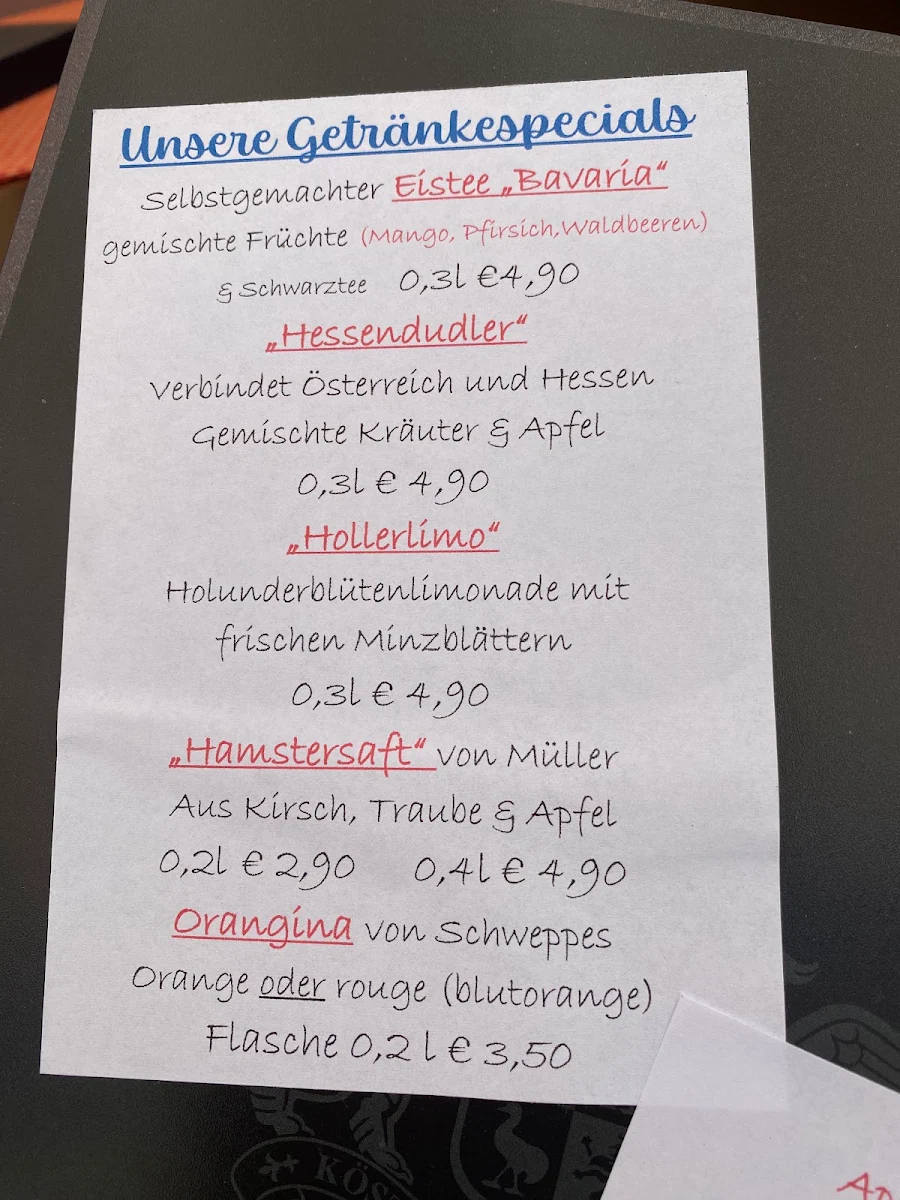 Unsere Getränkespecials
Selbstgemachter Eistee „Bavaria“
gemischte Früchte (Mango, Pfirsich,Waldbeeren)
& Schwarztee 0,3l €4,90
„Hessendudler“
Verbindet Österreich und Hessen
Gemischte Kräuter & Apfel
0,3l € 4,90
„Hollerlimo“
Holunderblütenlimonade mit
frischen Minzblättern
0,3l € 4,90
„Hamstersaft“ von Müller
Aus Kirsch, Traube & Apfel
0,2l € 2,90 0,4l € 4,90
Orangina von Schweppes
Orange oder rouge (blutorange)
Flasche 0,2 l € 3,50